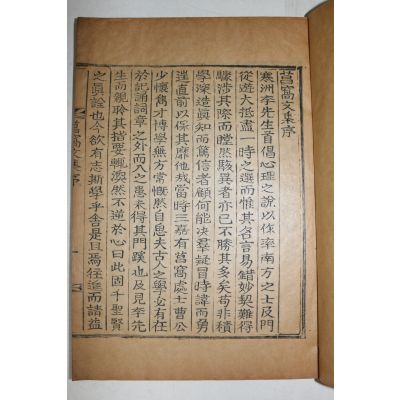 莒窩文集序
寒洲李先生首倡心理之說以倅率南方之士及門
從遊大抵盡一時之選而惟其名言易錯妙契難得
驟涉其際而瞠然駭異者亦已不勝其多矣苟非積
學深造眞知而篤信者顧何能决羣疑冒時諱而勇
往直前以保其靡他哉當時三嘉有莒窩處士曹公
少懷雋才博學無方常慨然自思夫古人之學必有在
於記誦詞章之外而久之患未得其門蹊也及見李先
生而親聆其指要輒渙然不逆於心曰此固千聖賢
之眞詮也今欲有志斯學乎舍是且焉往進而請益
莒窩文集 序 一